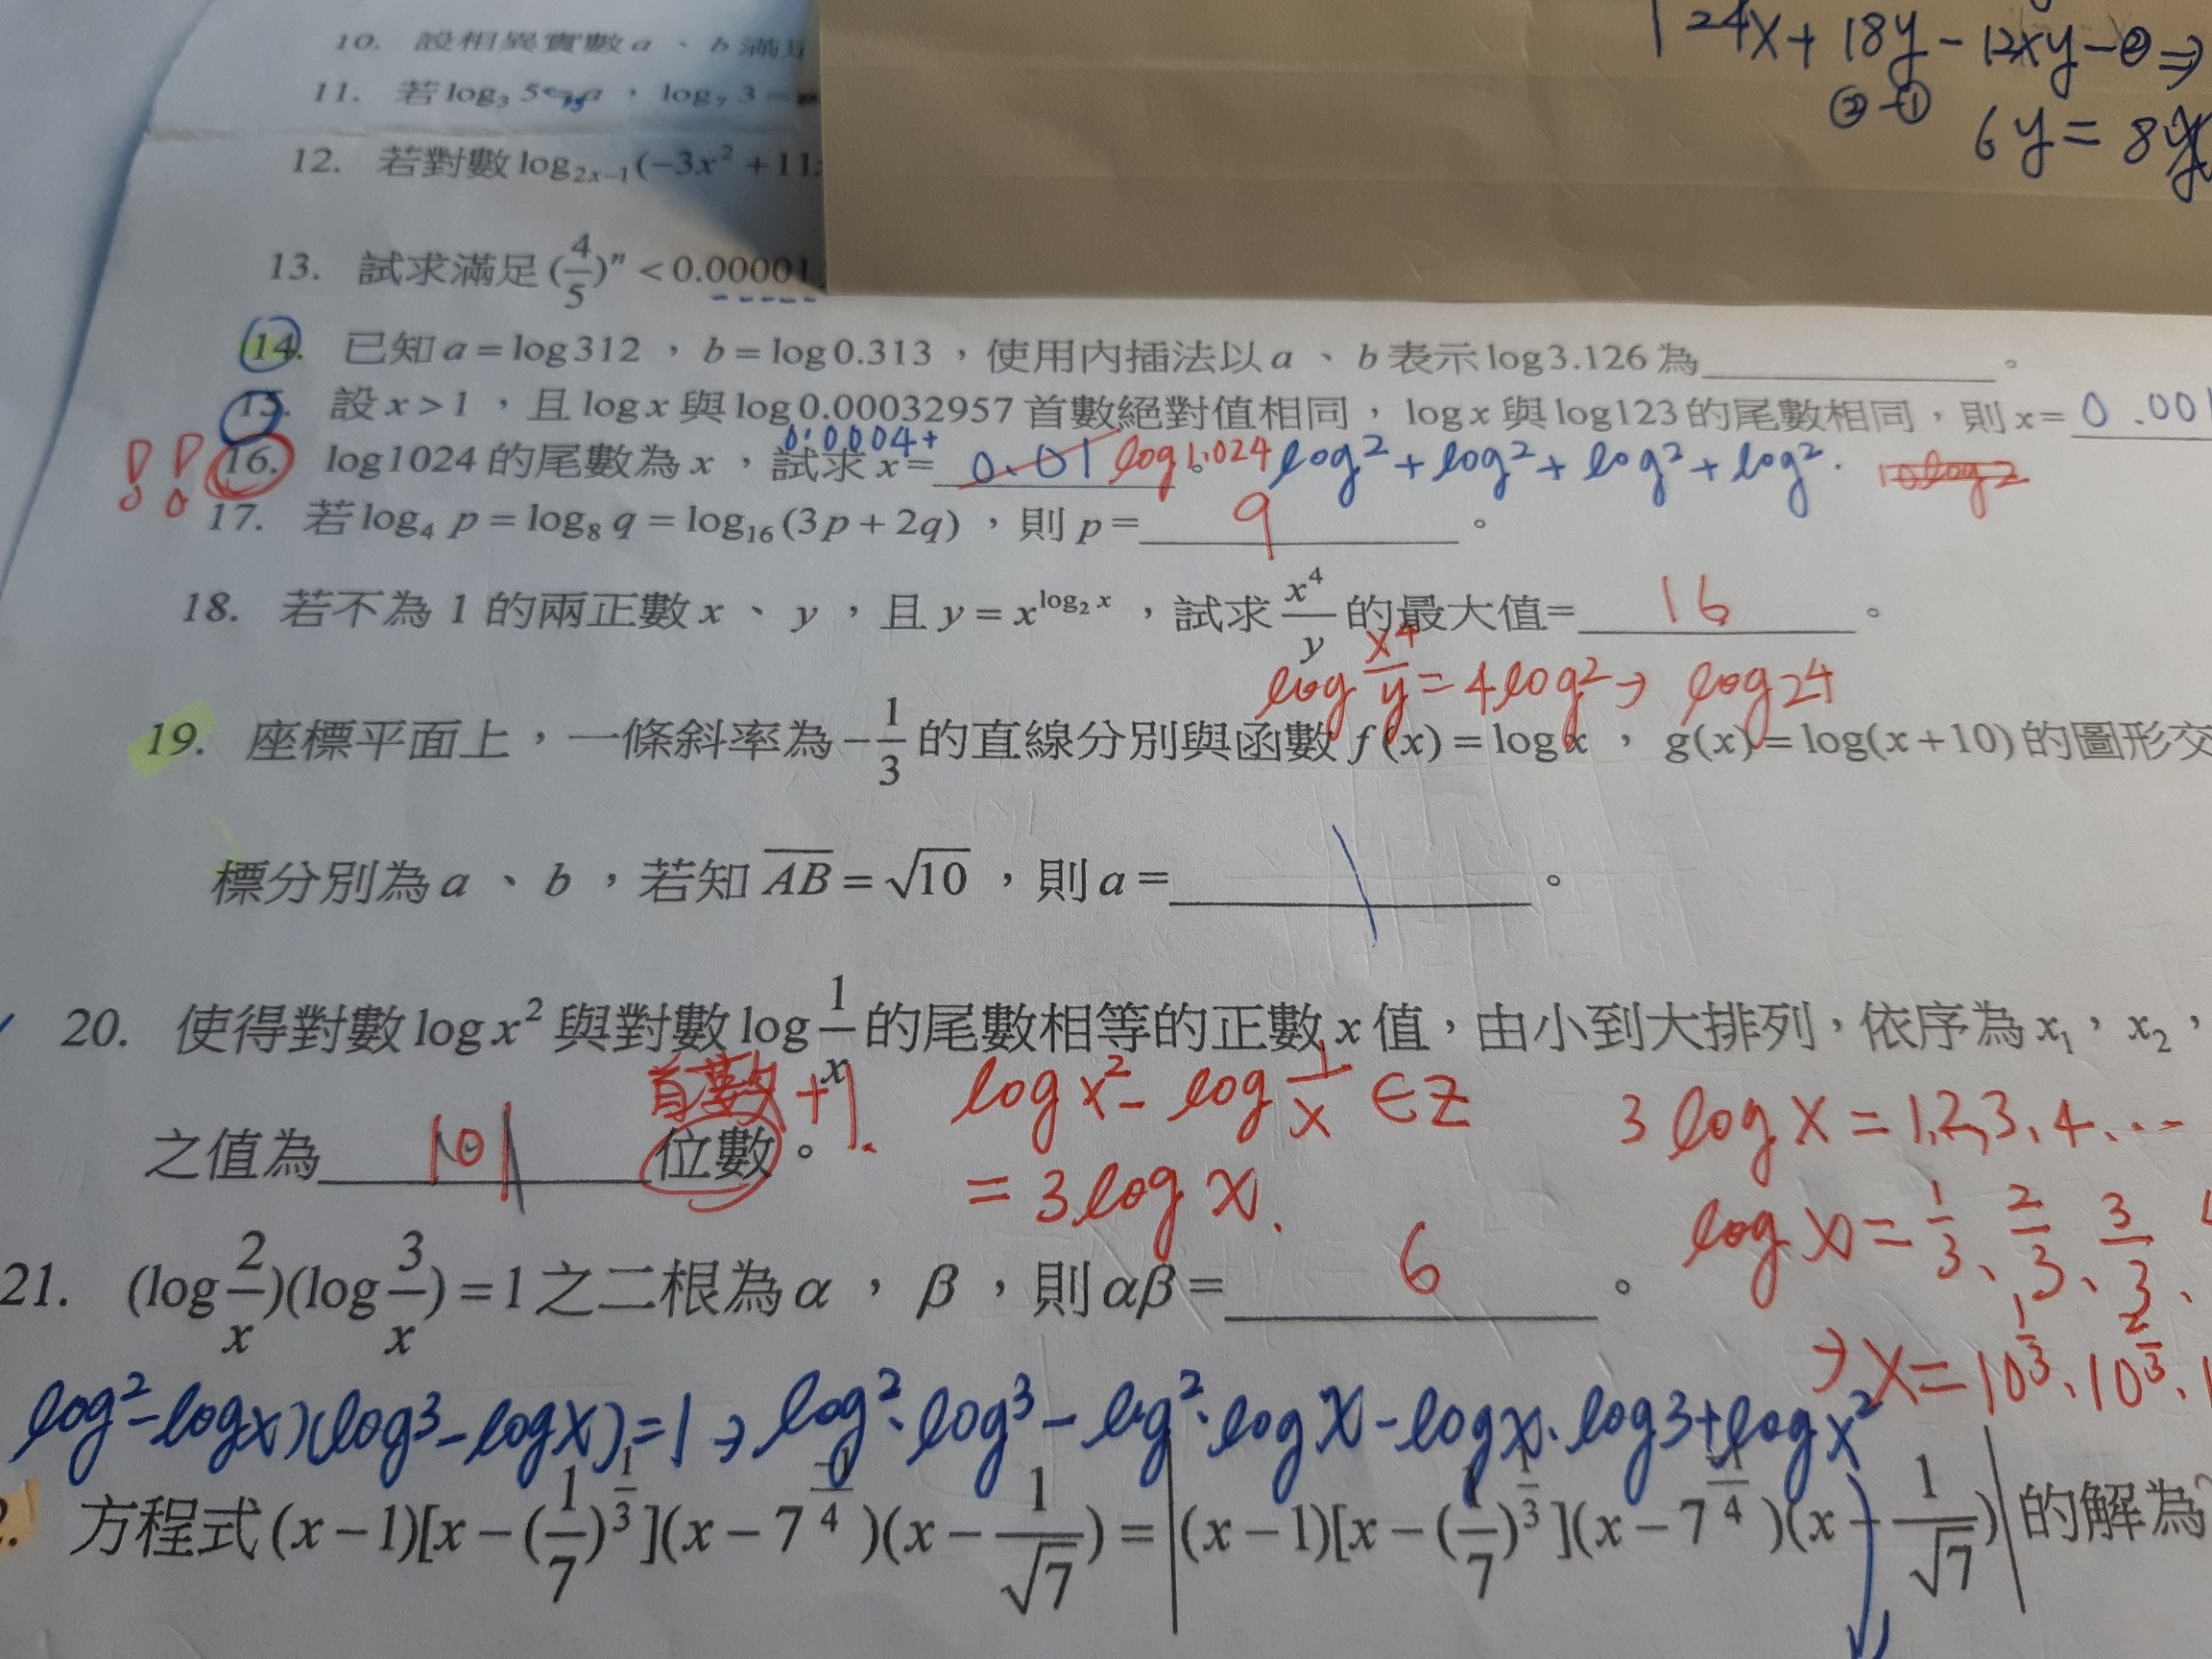 24x + 18y - 12xy - ② ⇒
② - ①
6y = 8
10. 設相異實數 a 、 b 滿足
11. 若 log₃ 5 = a ， log₇ 3 =
12. 若對數 log₂ₓ₋₁(−3x² + 11
13. 試求滿足 (4/5)ⁿ < 0.00001
14. 已知 a = log 312 ， b = log 0.313 ，使用內插法以 a 、 b 表示 log 3.126 為＿＿＿＿。
15. 設 x > 1 ，且 log x 與 log 0.00032957 首數絕對值相同，log x 與 log 123 的尾數相同，則 x = 0.00
0.0004+
16. log 1024 的尾數為 x ，試求 x = 0.01 log 1.024 。 log² + log² + log² + log². 10log2
17. 若 log₄ p = log₈ q = log₁₆ (3p + 2q) ，則 p = 9 。
18. 若不為 1 的兩正數 x 、 y ，且 y = x^(log₂ x) ，試求 x⁴/y 的最大值= 16 。
log x⁴/y = 4log² → log 24
19. 座標平面上，一條斜率為 −1/3 的直線分別與函數 f(x) = log x ， g(x) = log(x + 10) 的圖形交
標分別為 a 、 b ，若知 AB = √10 ，則 a = ＿＿＿＿。
20. 使得對數 log x² 與對數 log 1/x 的尾數相等的正數 x 值，由小到大排列，依序為 x₁ ， x₂ ，
首數 + 1. log x² - log 1/x ∈ Z 3 log x = 1,2,3,4...
之值為 101 位數。 = 3 log x.
log x = 1/3、2/3、3/3、
21. (log 2/x)(log 3/x) = 1 之二根為 α ， β ，則 αβ = 6 。
→ x = 10^(1/3)、10^(2/3)、1
log² - log x)(log³ - log x) = 1 → log²·log³ - log²·log x - log x·log 3 + log x²
方程式 (x − 1)[x − (1/7)^(1/3)](x − 7^(−1/4))(x − 1/√7) = |(x − 1)[x − (1/7)^(1/3)](x − 7^(−1/4))(x − 1/√7)| 的解為